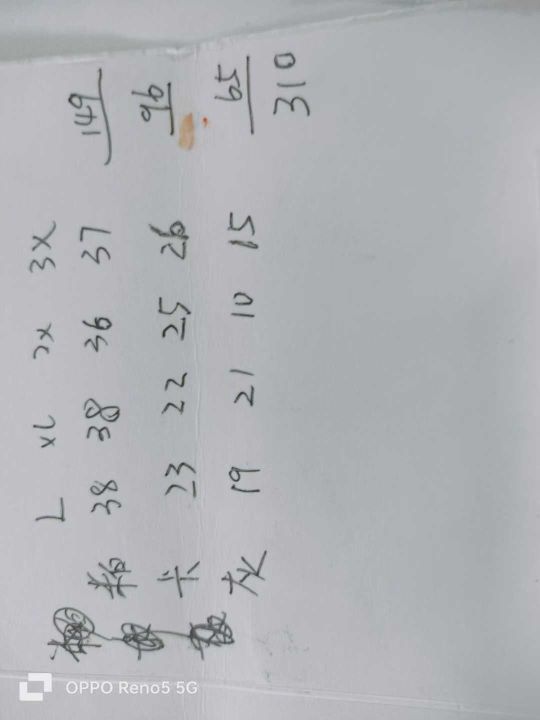 L xL 2x 3X
38 38 36 37 149
卡 23 22 25 26 96
灰 19 21 10 15 65
310
OPPO Reno5 5G